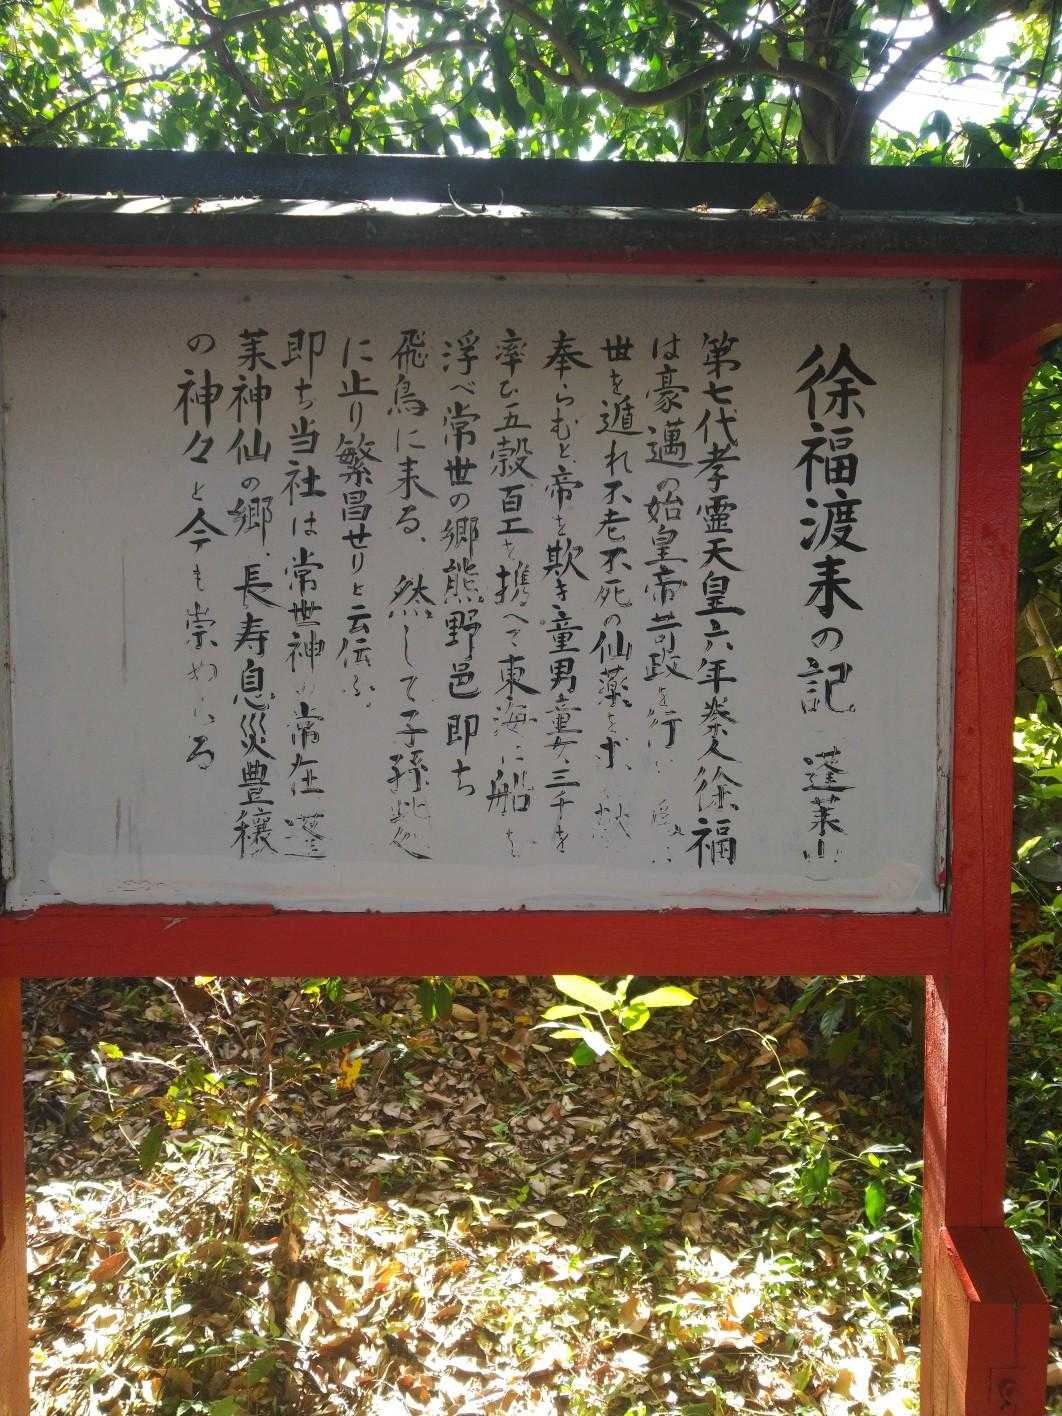 徐福渡来の記 蓬莱山
第七代孝霊天皇六年秦人徐福
は豪邁の始皇帝苛政を行い
世を遁れ不老不死の仙薬を
奉らむと帝を欺き童男童女三千を
率ひ五穀百工を携へて東海に船を
浮べ常世の郷熊野邑即ち
飛鳥に来る、然して子孫此処
に止り繁昌せりと云伝ふ。
即ち当社は常世神の常在蓬
莱神仙の郷、長寿息災豊穣
の神々と今も崇めいる